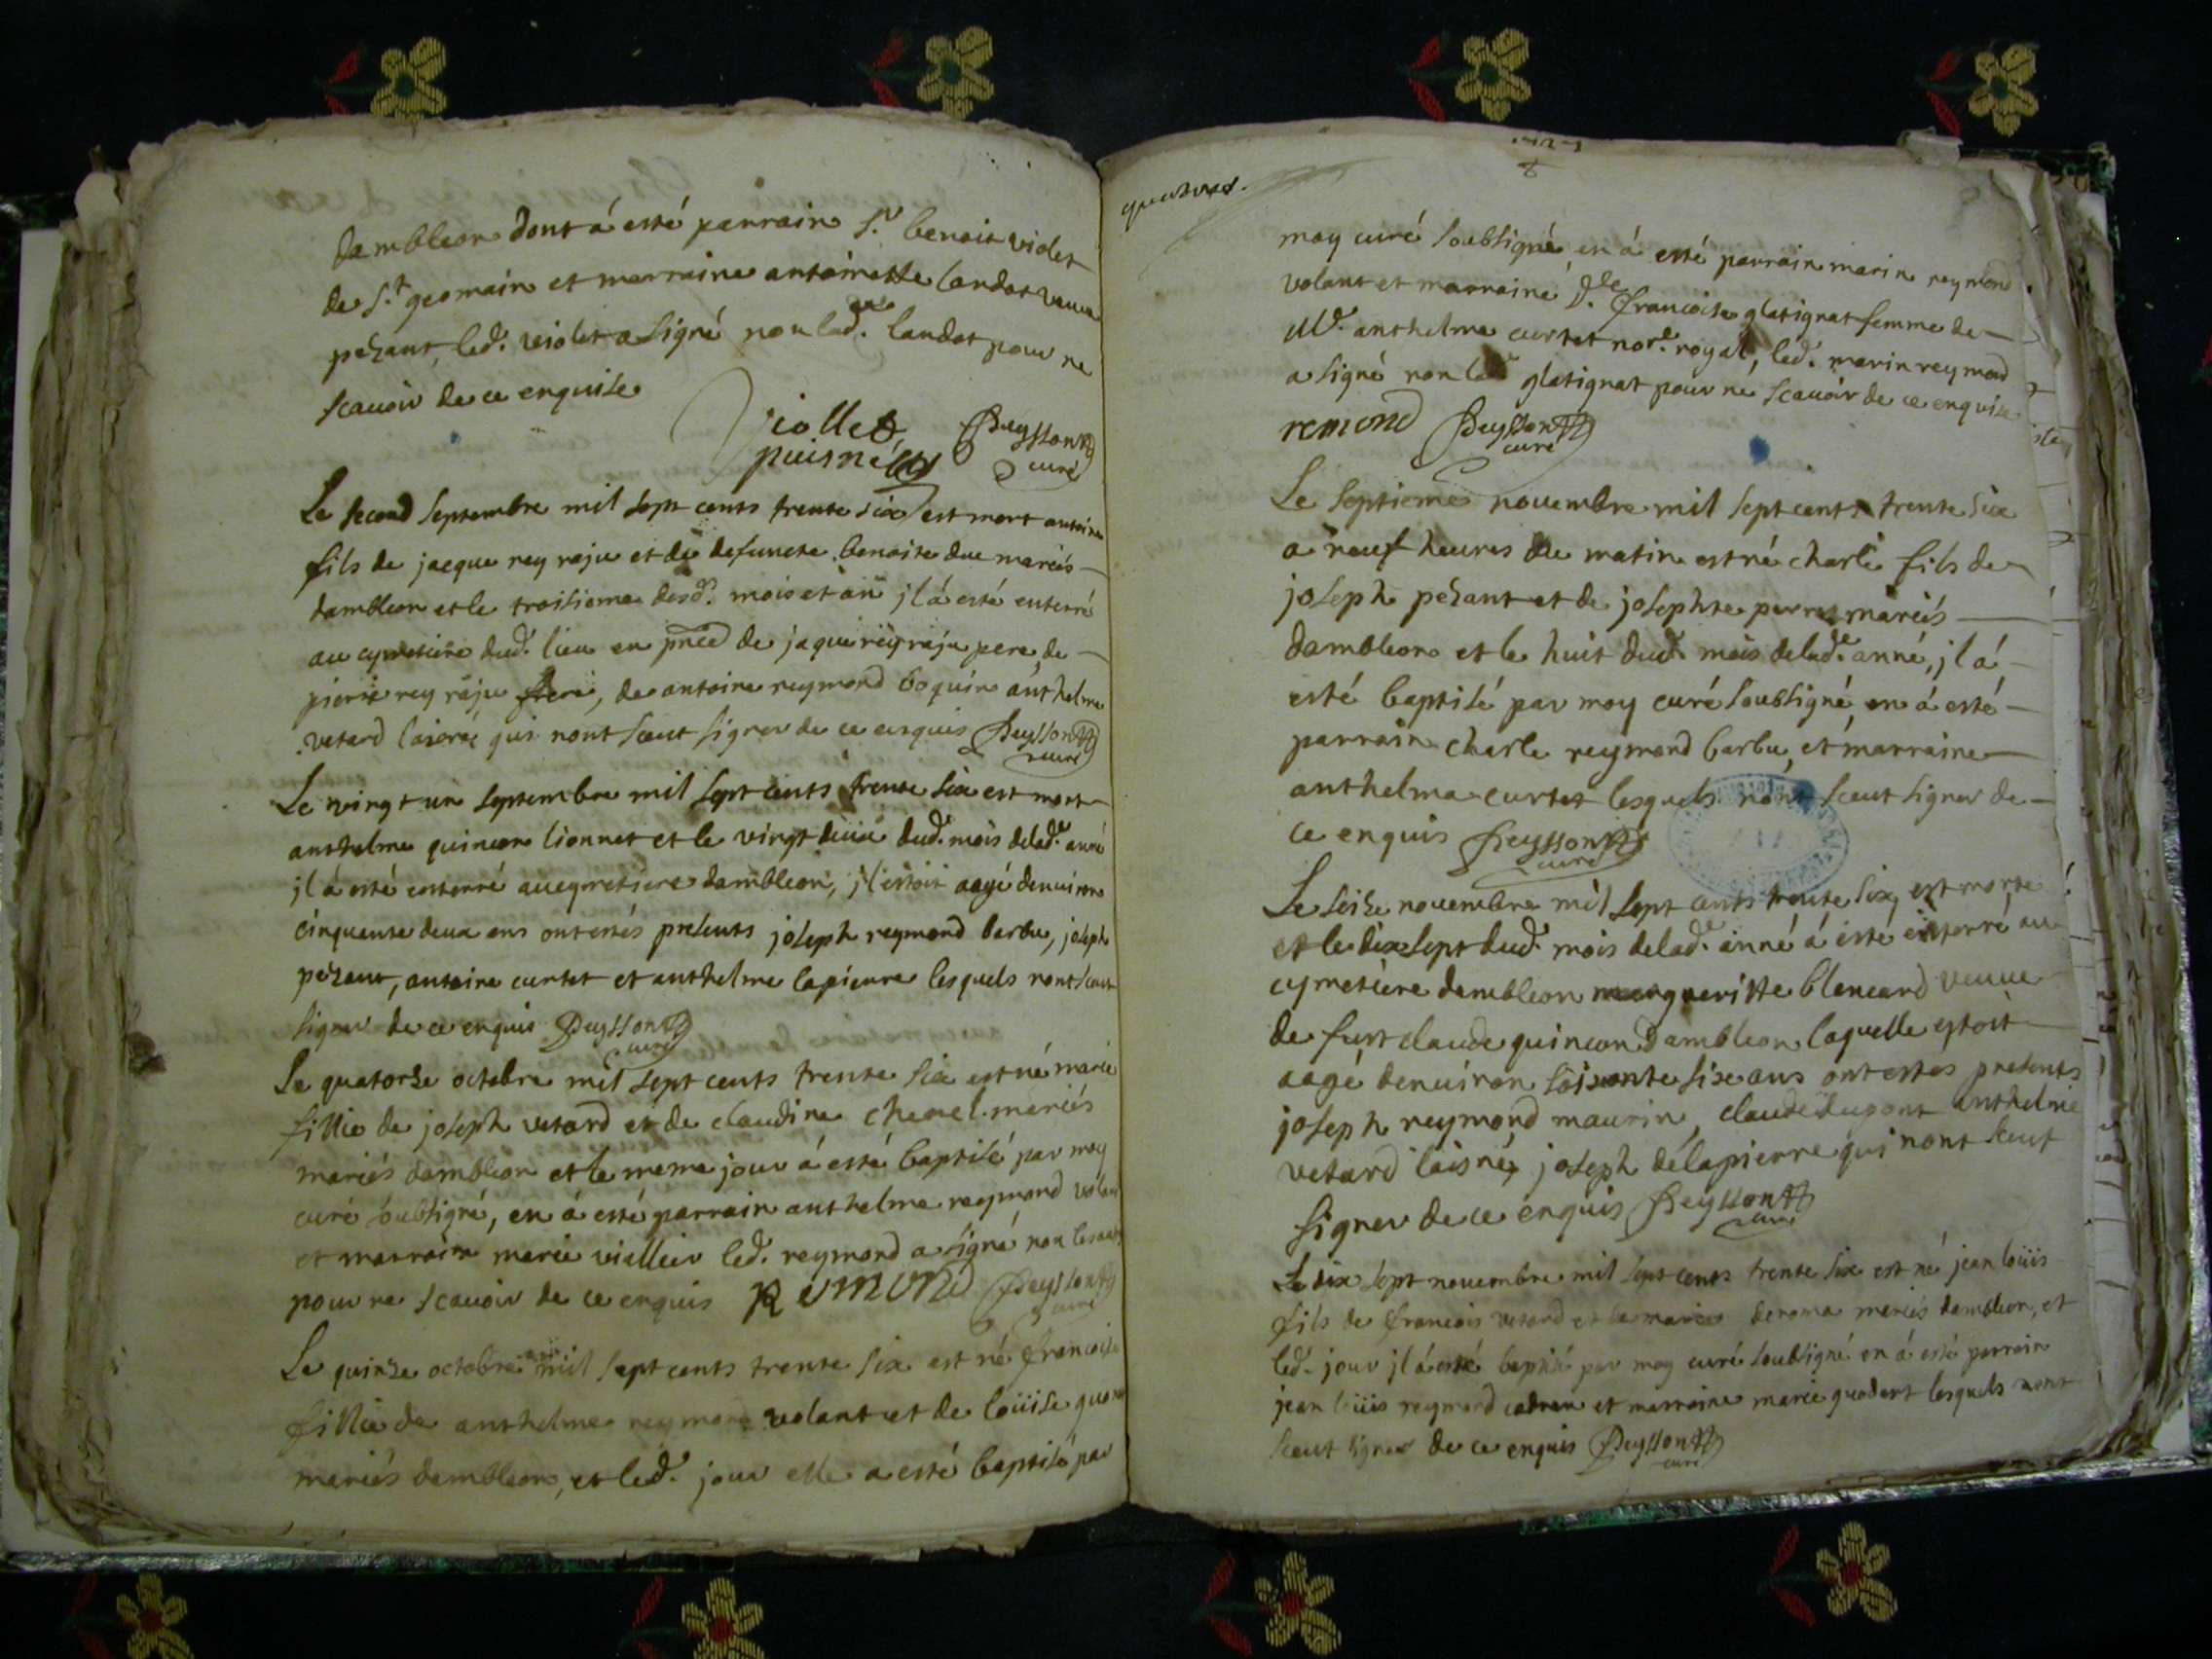 dambleon dont á esté parrain s.r benoit violet
de s.t germain et marraine antoinette landot veuve
pezant, led. violet a signé non lad. landot pour ne
scauoir de ce enquise
Viollet
puisné
Peysson
curé
Le second septembre mil sept cents trente six est mort antoine
fils de jacque rey raju et de defuncte benoite due mariés
dambleon et le troisieme desd. mois et an jl á esté enterré
au cymetiere dud. lieu en pnce de jaque rey raju pere, de
pierre rey raju frere, de antoine reymond boquin anthelme
vetard laisné qui nont sceut signer de ce enquis Peysson
curé
Le vingt un septembre mil sept cents trente six est mort
anthelme quincon lionnet et le vingt deux dud. mois delad. anné
jl á esté enterré au cymetiere dambleon, jl estoit aagé denuiron
cinquante deux ans ont estés presents joseph reymond barbu, joseph
pezant, antoine curtet et anthelme lapierre lesquels nont sceut
signer de ce enquis Peysson
curé
Le quatorze octobre mil sept cents trente six est né marie
fillie de joseph vetard et de claudine chamel mariés
mariés dambleon et le meme jour á esté baptisé par moy
curé soubsigné, en á esté parrain anthelme reymond volant
et marraine marie viellieu led. reymond a signé non les autres
pour ne scauoir de ce enquis Rémond Peysson
curé
Le quinze octobre mil sept cents trente six est né francoise
fillie de anthelme reymond volant et de loüise
mariés dambleon, et led. jour elle a esté baptisé par
moy curé soubsigné en á esté parrain marin reymond
volant et marraine d.lle francoise glatignat femme de
M.e anthelme curtet nore. royal, led. marin reymond
a signé non lad glatignat pour ne scauoir de ce enquise
remond Peysson
curé
Le septieme nouembre mil sept cents trente six
a neuf heures du matin est né charle fils de
joseph pezant et de josephte perret mariés
dambleon et le huit dud. mois delad. anné, jl á
esté baptisé par moy curé soubsigné, en á esté
parrain charle reymond barbu, et marraine
anthelma curtet lesquels nont sceut signer de
ce enquis Peysson
curé
Le seize nouembre mil sept cents trente six, est morte
et le dix sept dud. mois delad. anné á esté enterré au
cymetiere dambleon margueritte blancard veuue
de fust claude quincon dambleon laquelle estoit
aagé denuiron soixante six ans ont estés presents
joseph reymond maurin, claude dupont anthelme
vetard laisné, joseph delapierre qui nont sceut
signer de ce enquis Peysson
curé
Le dix sept nouembre mil sept cents trente six est né jean loüis
fils de francois vetard et de marie deroma mariés dambleon, et
led. jour jl á esté baptisé par moy curé soubsigné en á esté parrain
jean loüis reymond cadran et marraine marie guodart lesquels nont
sceut signer de ce enquis Peysson
curé